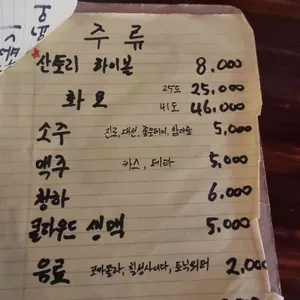 주 류
산토리 하이볼 8.000
화요 25도 25.000
41도 46.000
소주 진로, 대선, 좋은데이, 참이슬 5,000
맥주 카스, 테라 5,000
청하 6.000
클라우드 생맥 5.000
음료 코카콜라, 칠성사이다, 토닉워터 2,000